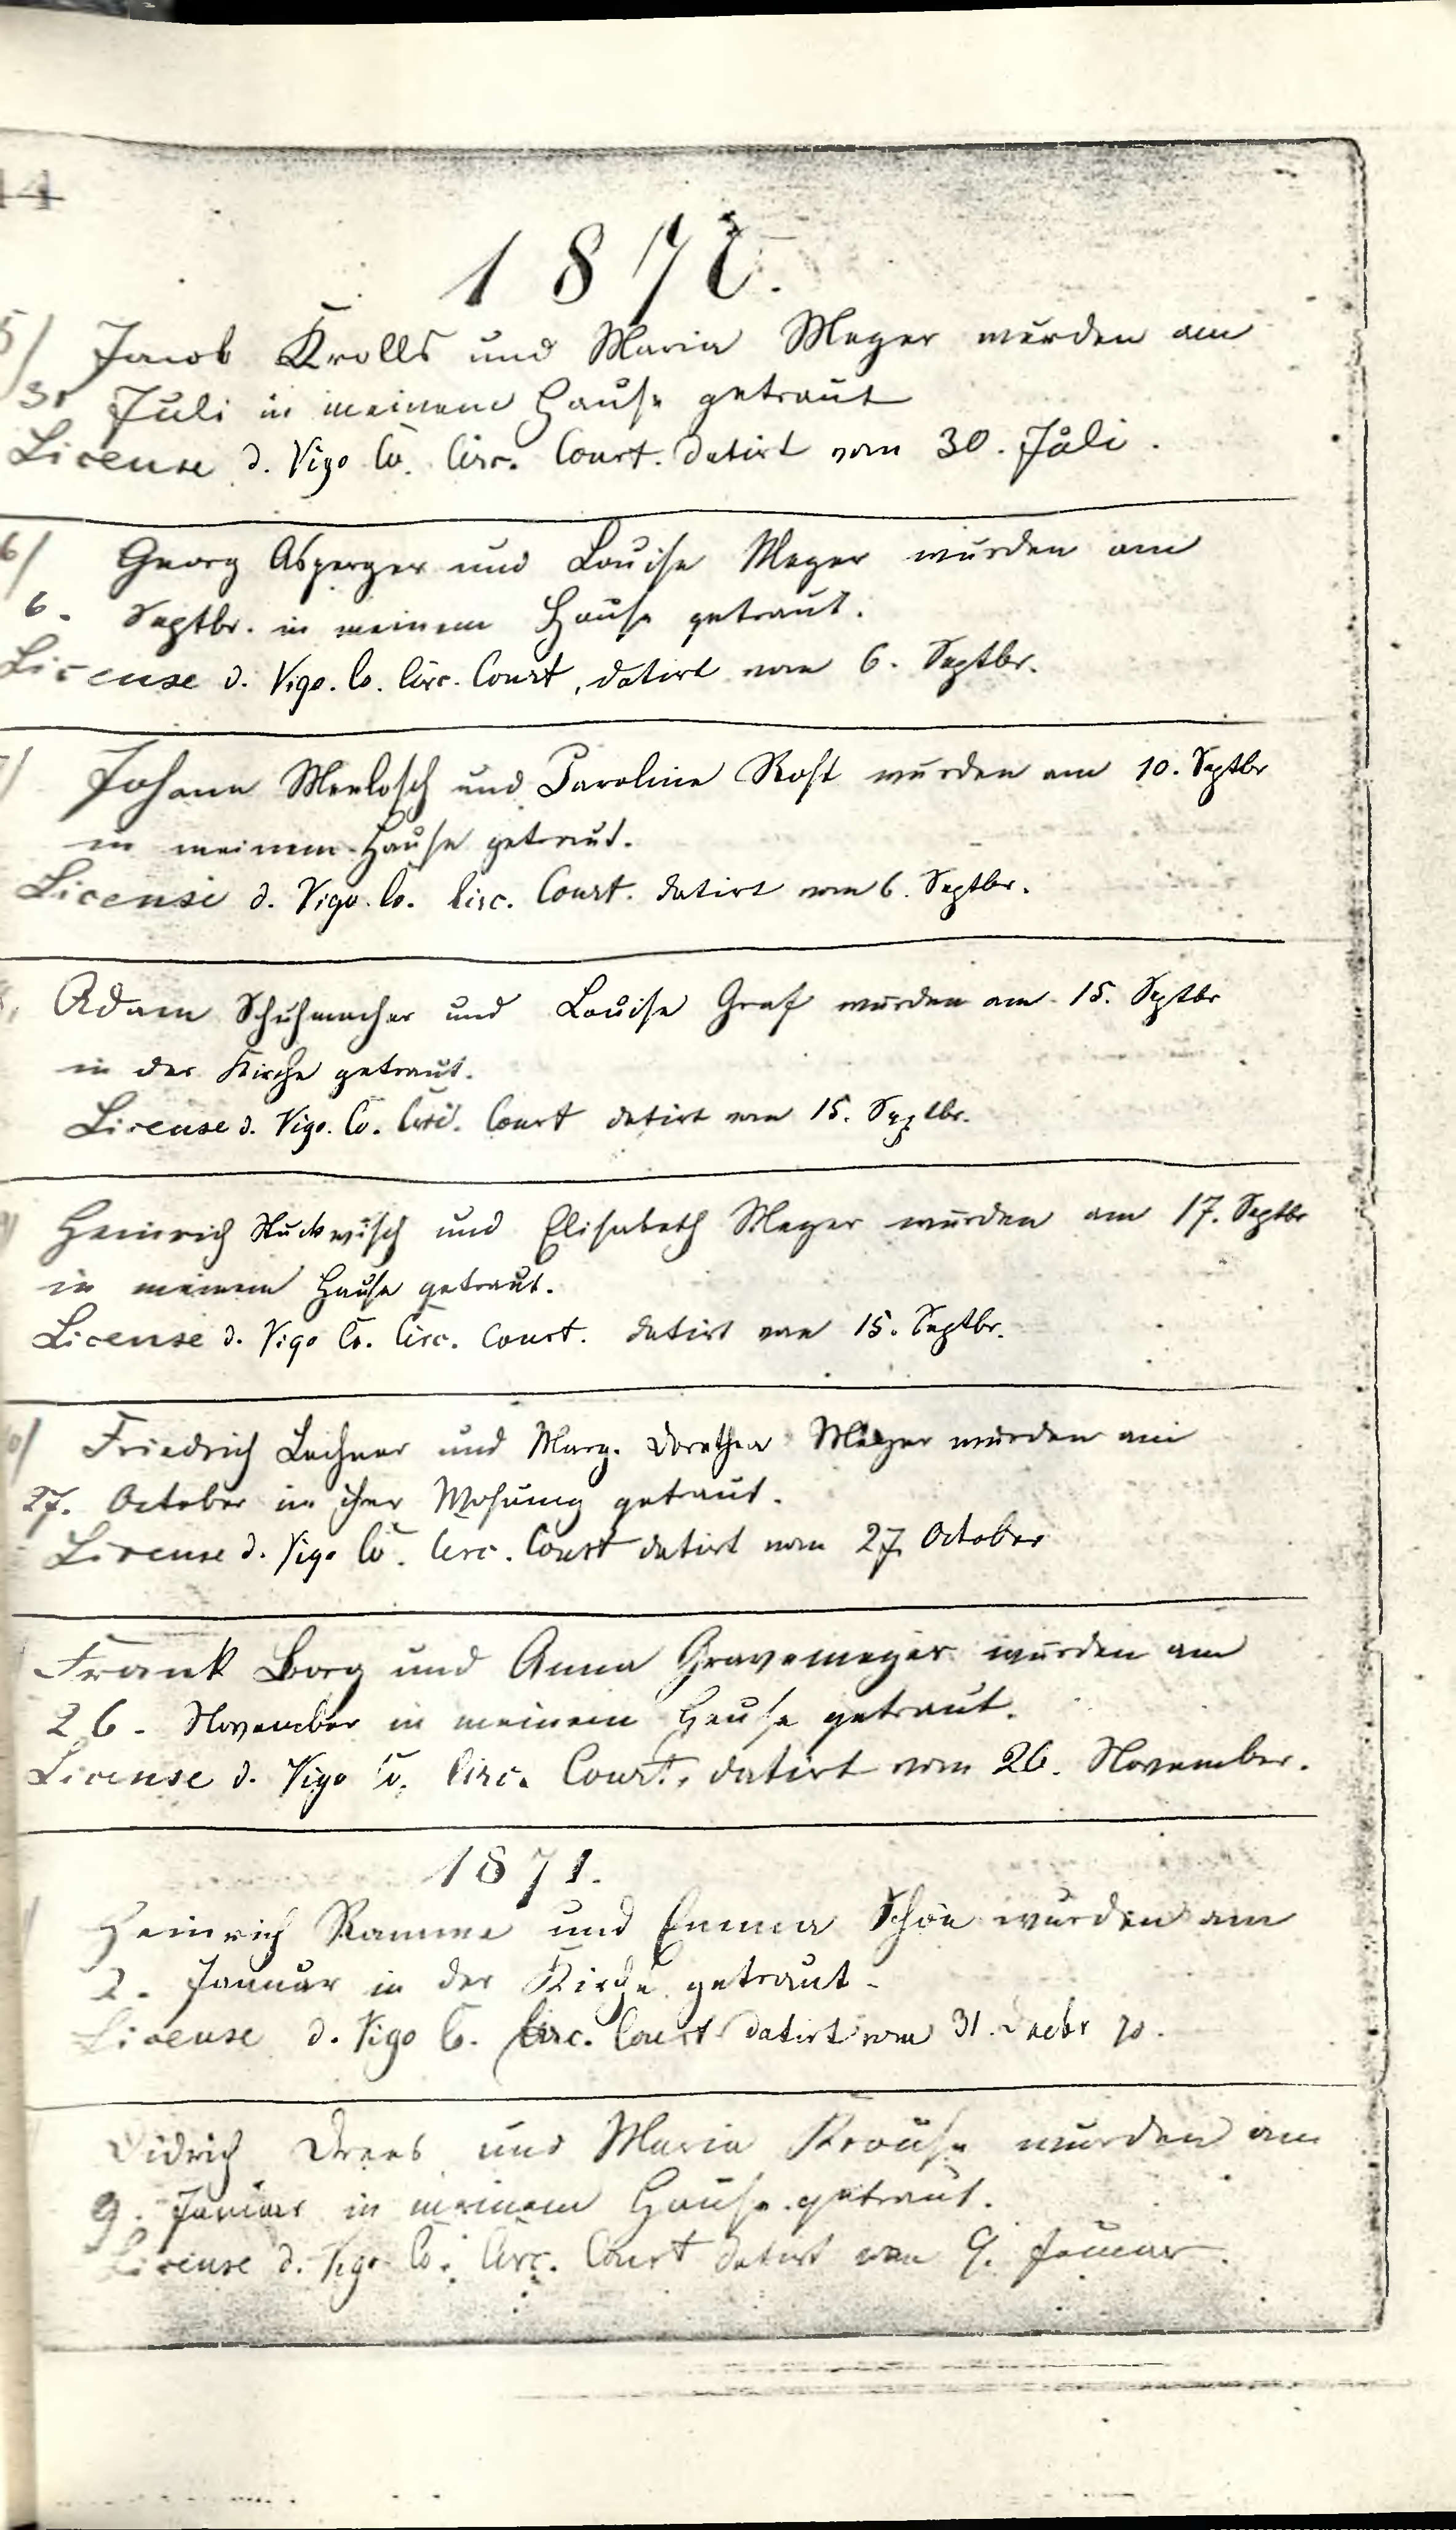 14
1870.
5/ Jacob Krolls und Maria Meyer wurden am
Juli in meinem Hause getraut
License d. Vigo Co. Circ. Court. datirt vom 30. Juli.
6/ Georg Asperger und Louise Meyer wurden am
6. Septbr. in meinem Hause getraut.
License d. Vigo. Co. Circ. Court, datirt vom 6. Septbr.
Johann und Caroline Rost wurden am 10. Septbr
in meinem Hause getraut.
License d. Vigo. Co. Circ. Court. datirt vom 6. Septbr.
Adam Schuhmacher und Louise Graf wurden am 15. Septbr
in der Kirche getraut.
License d. Vigo. Co. Circ. Court datirt vom 15. Septbr.
Heinrich Stuckwisch und Elisabeth Meyer wurden am 17. Septbr
in meinem Hause getraut.
License d. Vigo Co. Circ. Court. datirt vom 15. Septbr.
Friedrich Lechner und Marg. Dorothea wurden am
27. October in ihrer Wohung getraut.
License d. Vigo Co. Circ. Court datirt vom 27. October
Frank Borg und Anna Gravemeyer wurden am
26. November in meinem Hause getraut.
License d. Vigo Co. Circ. Court, datirt vom 26. November.
1871.
Heinrich Ramme und Emma Schön wurden am
2. Januar in der Kirche getraut.
License d. Vigo Co. Circ. Court datirt vom 31. Decbr 70.
Didrich Drees und Maria Krause wurden am
9. Januar in meinem Hause getraut.
License d. Vigo Co. Circ. Court datirt vom 9. Januar.